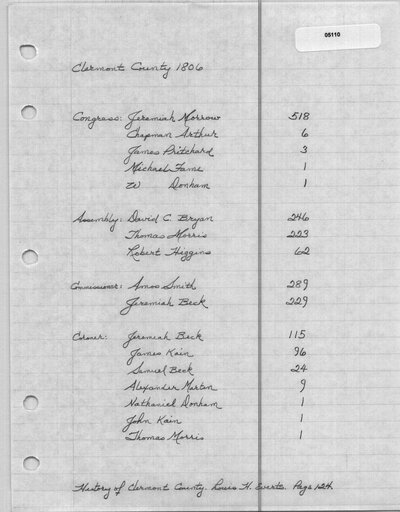 05110
Clermont County 1806
Congress: Jeremiah Morrow 518
Chapman Arthur 6
James Pritchard 3
Michael Fame 1
W Donham 1
Assembly: David C. Bryan 246
Thomas Morris 223
Robert Higgins 62
Commissioner: Amos Smith 289
Jeremiah Beck 229
Coroner: Jeremiah Beck 115
James Kain 96
Samuel Beck 24
Alexander Martin 9
Nathaniel Donham 1
John Kain 1
Thomas Morris 1
History of Clermont County. Louis H. Everts. Page 124.